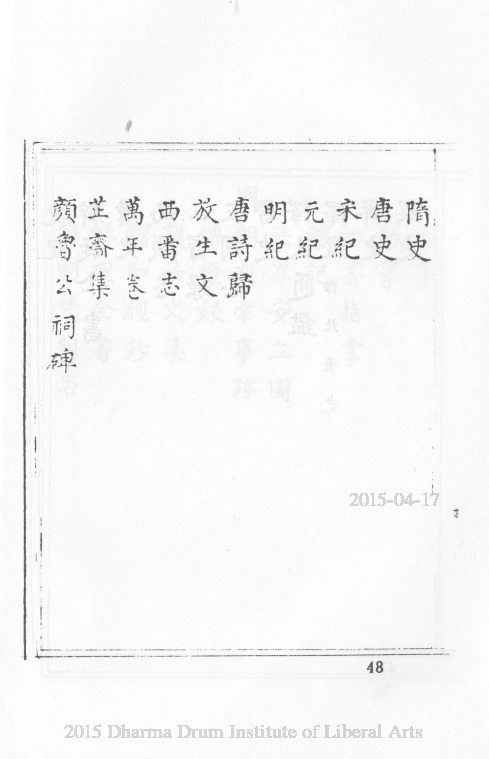 隋史
唐史
宋紀
元紀
明紀
唐詩歸
放生文
西番志
萬年卷
芷齋集
顏魯公祠碑
2015-04-17
48
2015 Dharma Drum Institute of Liberal Arts